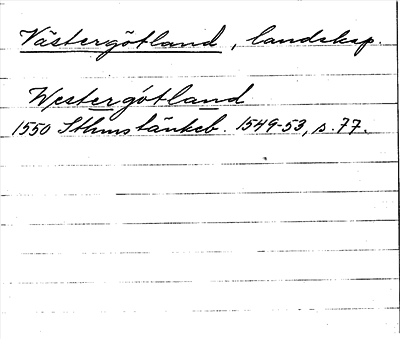 Västergötland, landskap.
Westergótland
1550 Sthms tänkeb. 1549-53, s. 77.